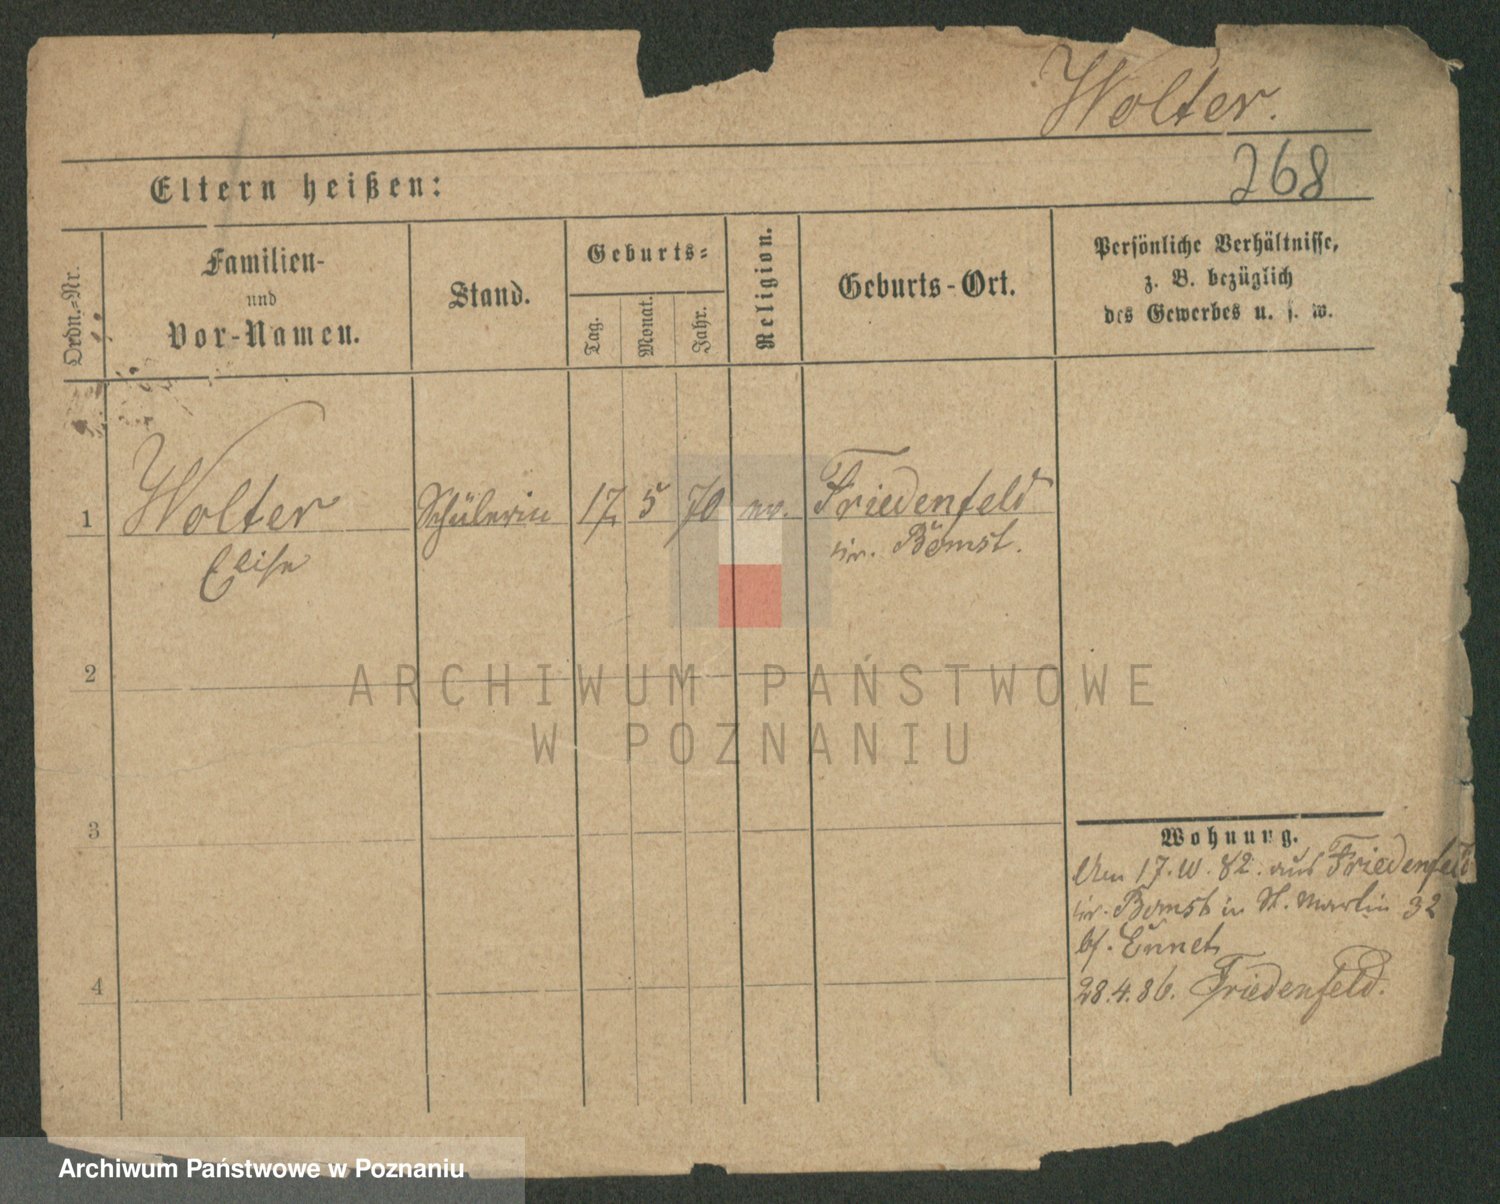 Wolter.
268
Eltern heißen:
Ordn.-Nr.
Familien-
und
Vor-Namen.
Stand.
Geburts=
Tag.
Monat.
Jahr.
Religion.
Geburts-Ort.
Persönliche Verhältnisse,
z. B. bezüglich
des Gewerbes u. s. w.
1 Wolter Schülerin 17 5 70 ev. Friedenfeld
Elise Kr. Bomst.
2
3
4
Wohnung.
Am 17. 10. 82. aus Friedenfeld
Kr. Bomst in St. Martin 32
bf.
28.4.86. Friedenfeld.
ARCHIWUM PAŃSTWOWE
W POZNANIU
Archiwum Państwowe w Poznaniu